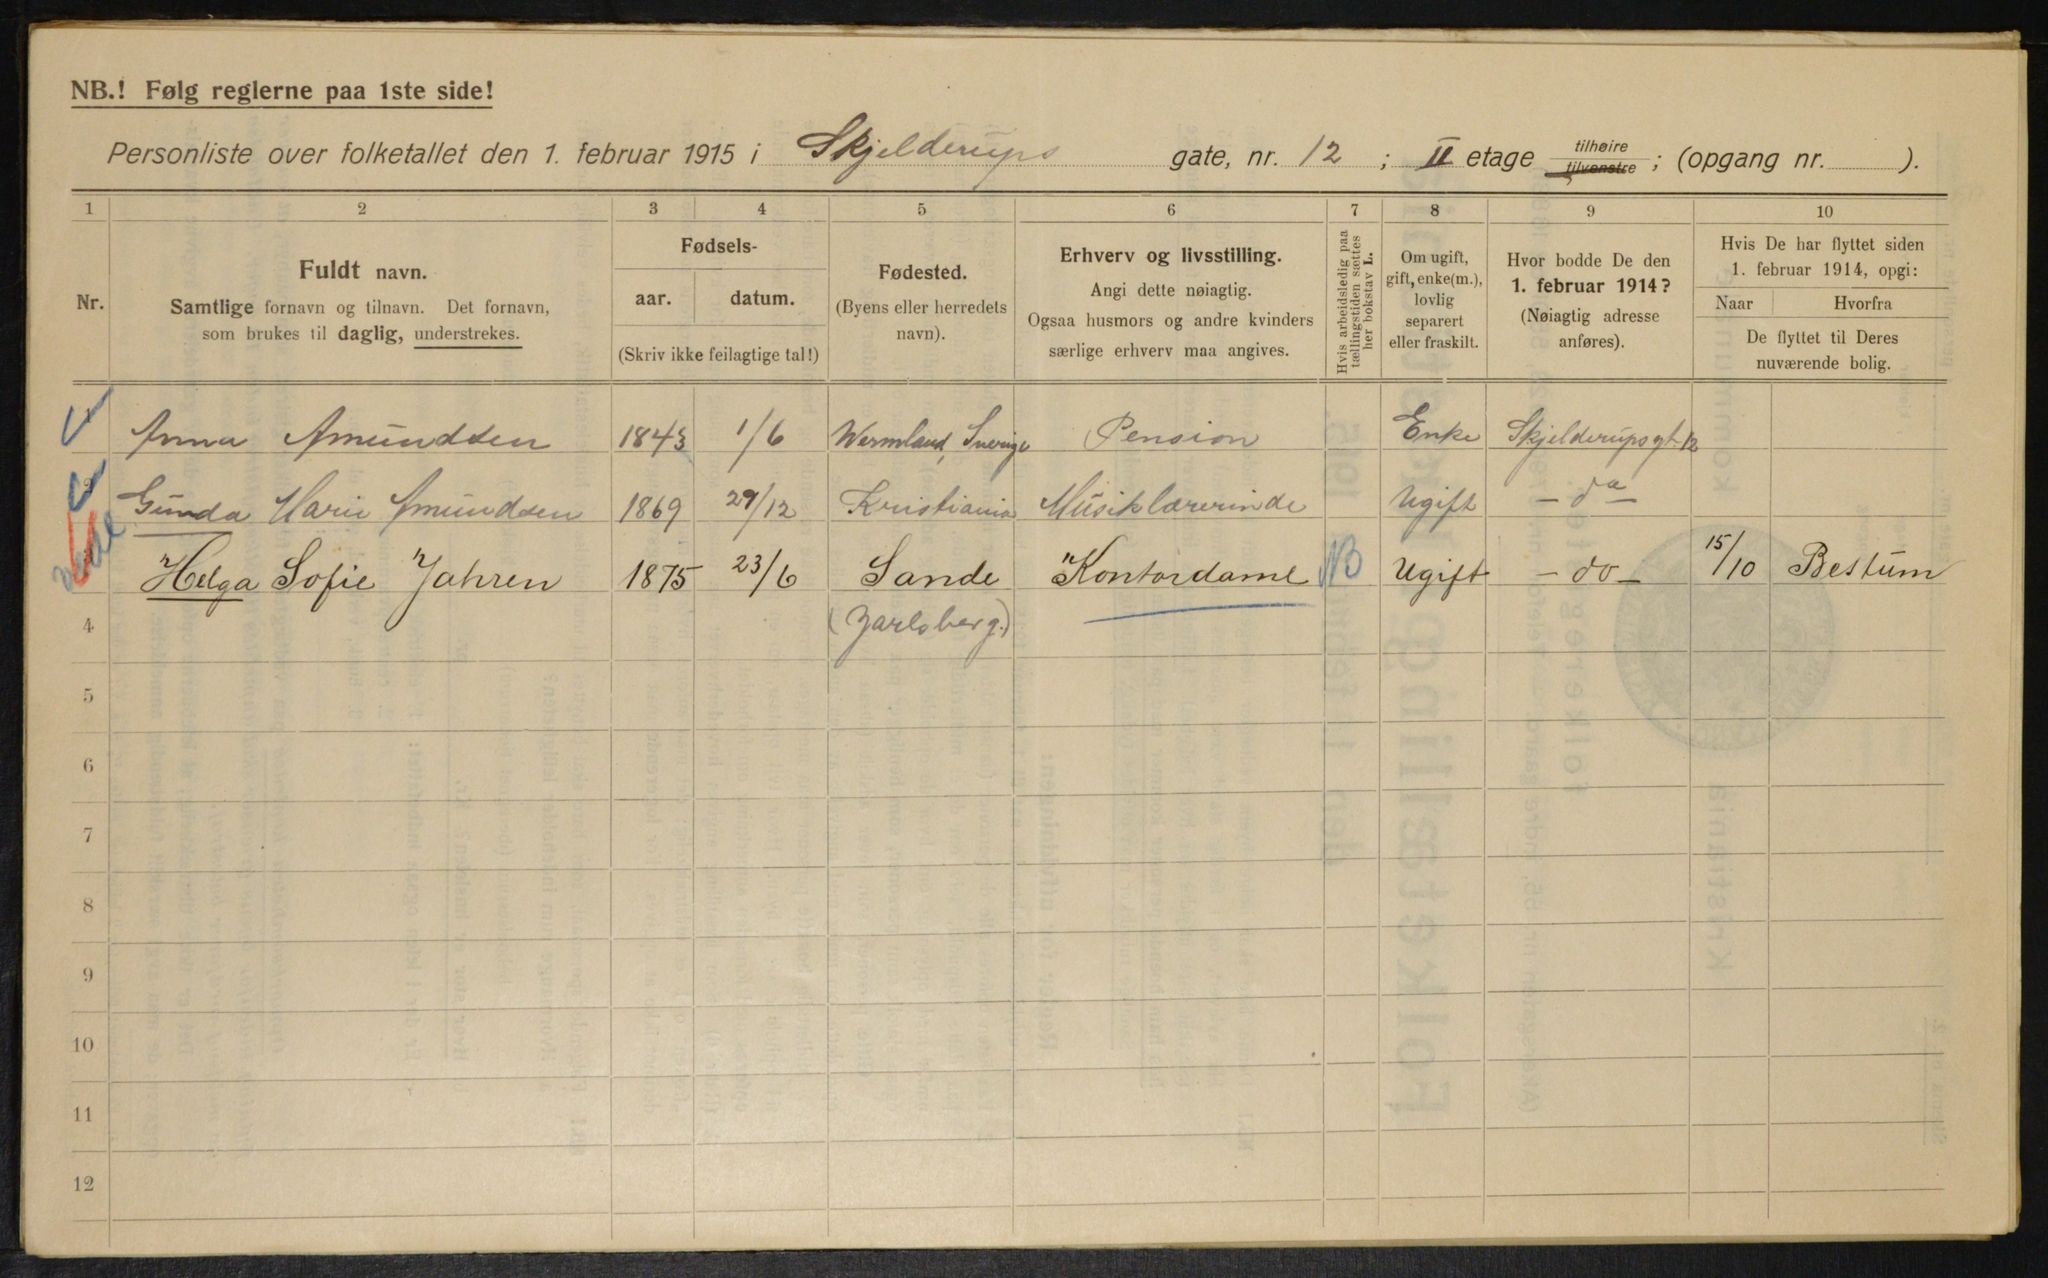 NB.! Følg reglerne paa 1ste side!
Personliste over folketallet den 1. februar 1915 i Skjelderups gate, nr. 12 ; II etage tilhøire tilvenstre ; (opgang nr. ).
1 2 3 4 5 6 7 8 9 10
Nr.
Fuldt navn.
Samtlige fornavn og tilnavn. Det fornavn,
som brukes til daglig, understrekes.
Fødsels-
aar. datum.
(Skriv ikke feilagtige tal!)
Fødested.
(Byens eller herredets
navn).
Erhverv og livsstilling.
Angi dette nøiagtig.
Ogsaa husmors og andre kvinders
særlige erhverv maa angives.
Hvis arbeidsledig paa
tællingstiden sættes
her bokstav L.
Om ugift,
gift, enke(m.),
lovlig
separert
eller fraskilt.
Hvor bodde De den
1. februar 1914?
(Nøiagtig adresse
anføres).
Hvis De har flyttet siden
1. februar 1914, opgi:
Naar Hvorfra
De flyttet til Deres
nuværende bolig.
1 Anna Amundsen 1843 1/6 Wermland, Sverige Pension Enke Skjelderupsgt. 12
2 Gunda Marie Amundsen 1869 29/12 Kristiania Musiklærerinde Ugift — do —
Helga Sofie Jahren 1875 23/6 Sande Kontordame NB Ugift — do — 15/10 Bestum
4 (Jarlsberg.)
5
6
7
8
9
10
11
12